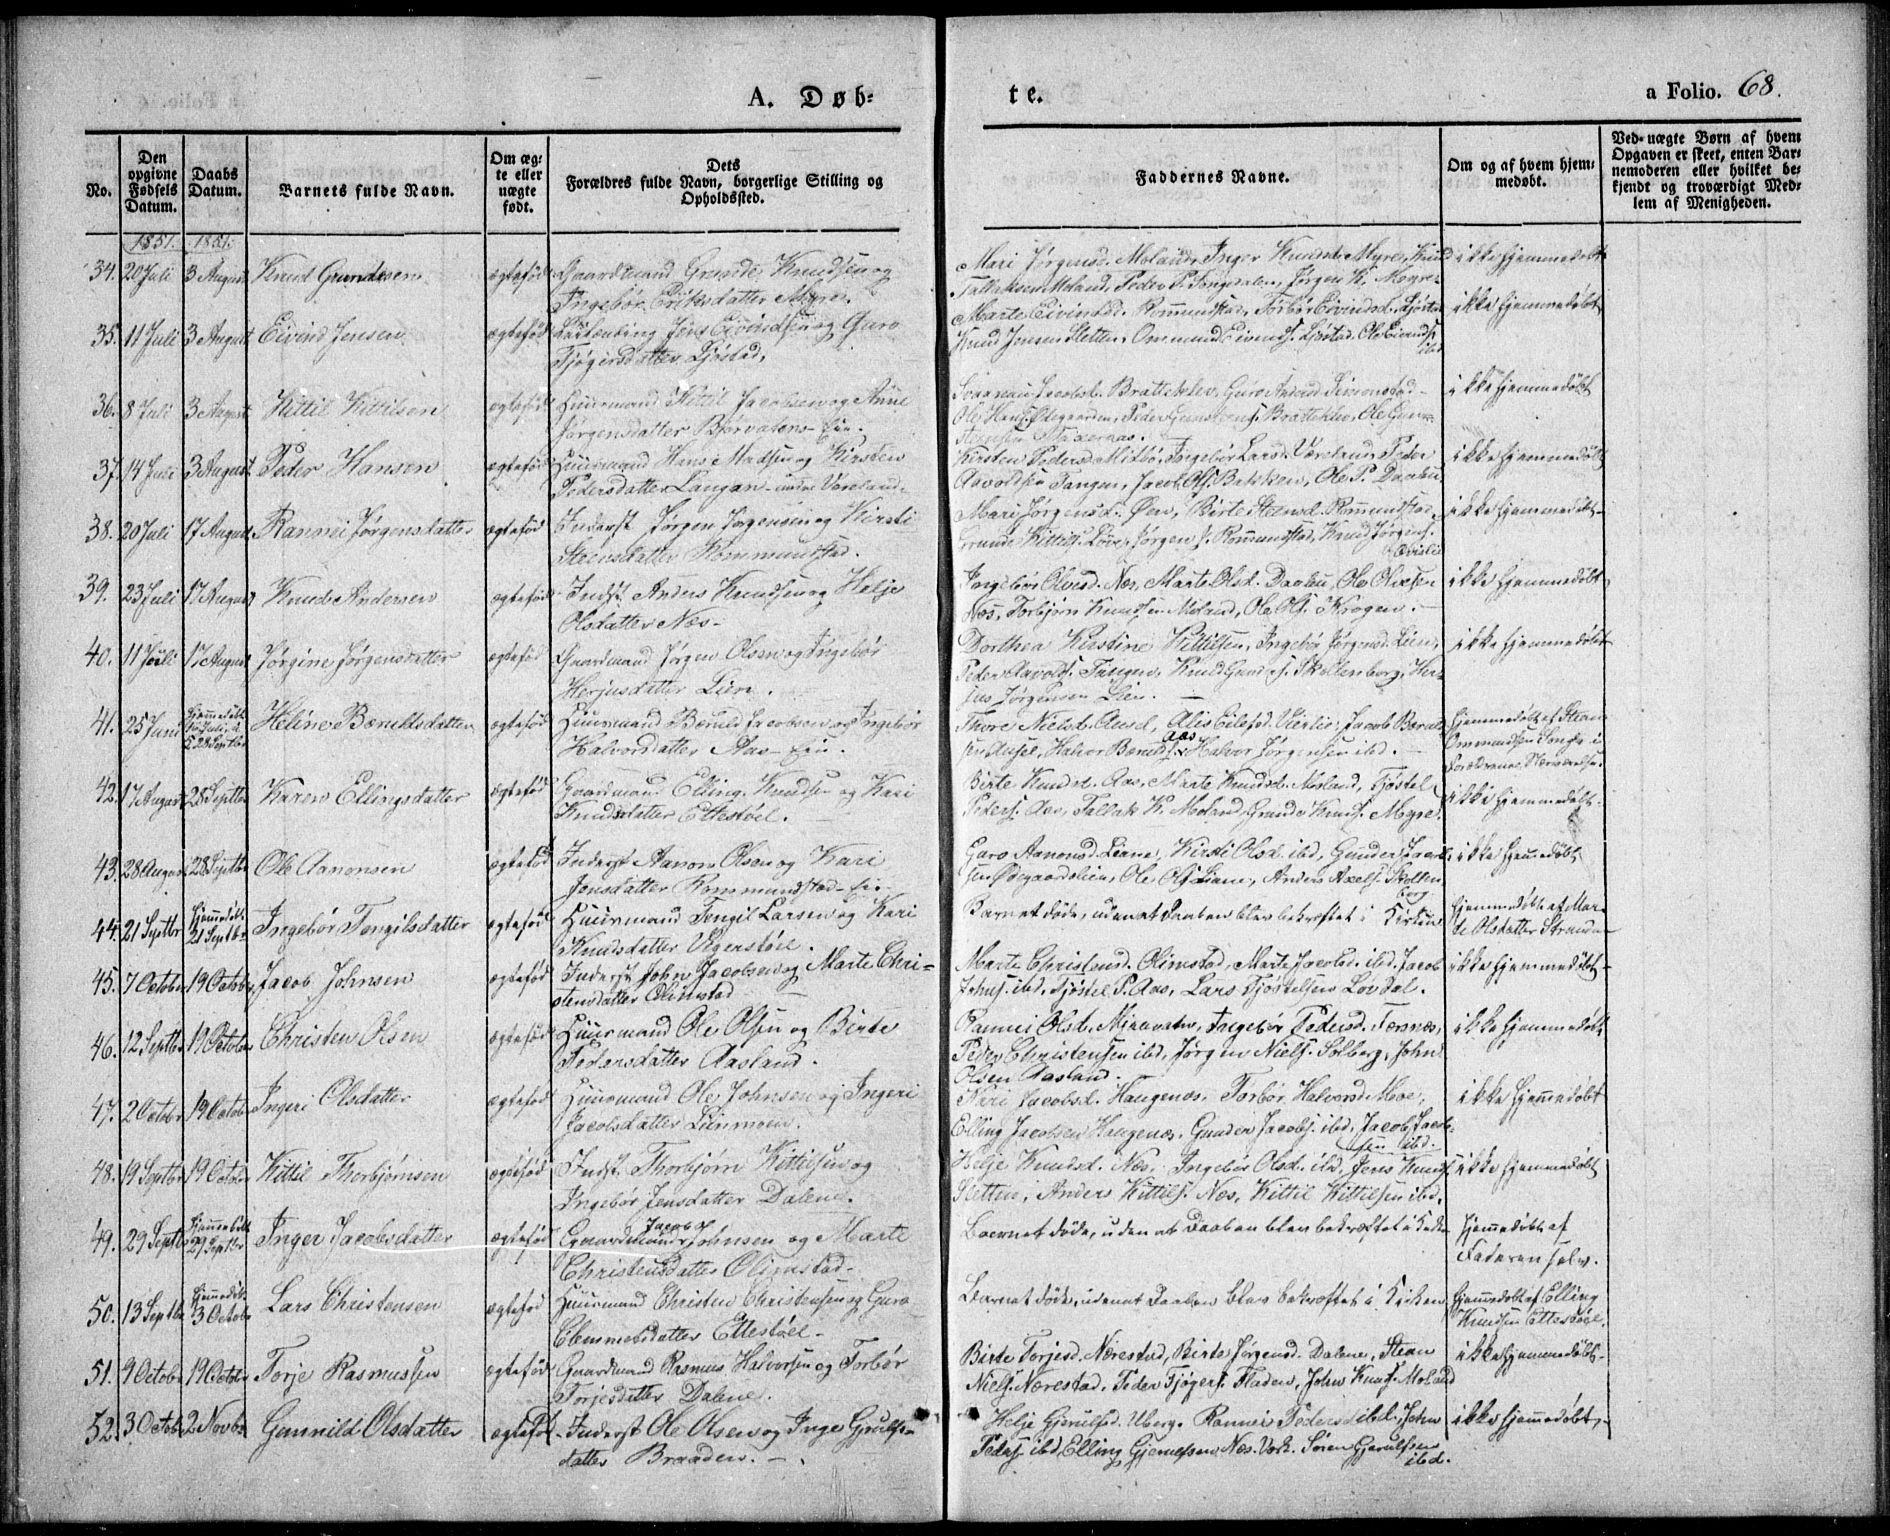 A. Døb-
te.
a Folio. 68.
No.
Den opgivne Fødsels Datum.
Daabs Datum.
Barnets fulde Navn.
Om ægte eller uægte født.
Dets Forældres fulde Navn, borgerlige Stilling og Opholdssted.
Faddernes Navne.
Om og af hvem hjemmedøbt.
Ved uægte Børn af hvem Opgaven er skeet, enten Barnemoderen eller hvilket bekjendt og troværdigt Medlem af Menigheden.
1851. 1851.
34. 20 Juli 3 August Knud Gundesen ægtefød Gaardmand Gunde Knudsen og
Ingebor Eriksdatter Myre.
Mari Jørgensd. Moland, Inger Knudsd. Myre, Knud
Tallaksen Moland, Peder P. Jørgen K. Myre
ikke hjemmedøbt
35. 11 Juli 3 August Eivind Jensen ægtefød Jens Eivindsen og Guro
Tjøgersdatter Ljøstad,
Marte Eivindsd. Rommundstad, Torbor Eivindsd. Ljøstad
Knud Jensen Sletten, Ommund Eivinds. Ljøstad, Ole Eivinds.
ibd
ikke hjemmedøbt
36. 8 Juli 3 August Kittil Kittilsen ægtefød Huusmand Kittil Jacobsen og Anne
Jørgensdatter Bjorvatons-Eie.
Jacobsd. Bratteklev, Guro Simonstad
Ole Hans. Ødegaarden, Peder Bratteklev, Ole Gun-
ikke hjemmedøbt
37. 14 Juli 3 August Peder Hansen ægtefød Huusmand Hans Madsen og Kirsten
Pedersdatter Langan under Væreland.
Kirsten Pedersd. Mitbø, Ingebor Larsd. Væreland, Peder
Aavoldsen Tangen, Jacob Ols. Bakken, Ole P. Daabu
ikke hjemmedøbt
38. 20 Juli 17 August Rannei Jørgensdatter ægtefød Inderst Jørgen Jørgensen og Kirsti
Steensdatter Rommundstad.
Mari Jørgensd. Øen, Birte Steensd. Rommundstad
Gunde Kittils. Løve, Jørgen J. Rommundstad, Knud Jørgens.
ikke hjemmedøbt
39. 23 Juli 17 August Knud Andersen ægtefød Indst. Anders Knudsen og Helje
Olsdatter Næs
Ingebor Olsd. Næs, Marte Olsd. Daabu, Ole Olsen
Næs, Torbjørn Knudsen Moland, Ole Ols. Krogen.
ikke hjemmedøbt
40. 11 Juli 17 August Jørgine Jørgensdatter ægtefød Gaardmand Jørgen Olsen og Ingebor
Herjusdatter Lien.
Dorthea Kirstine Kittilsen, Ingebor Jørgensd. Lien,
Peder Aavolds. Tangen, Knud Gunds. Skollenborg, Her-
jus Jørgensen Lien.
ikke hjemmedøbt
41. 25 Juni Hjemmedøbt Juli, 28 Septbr Heline Bærulfsdatter ægtefød Huusmand Bærulf Jacobsen og Ingebor
Halvorsdatter Aas-Eie.
Thore Nielsd. Alis Eilefsd. Jacob Bærul-
sen Halvor Bærulfs. Aas Halvor Jørgensen ibd.
Hjemmedøbt af Stean
Ommundsen Songe i
Forældrenes Nærværelse.
42. 17 August 28 Septbr Karen Ellingsdatter ægtefød Gaardmand Elling Knudsen og Kari
Knudsdatter Ettestøel.
Birte Knudsd. Aas, Marte Knudsd. Moland, Tjøstel
Peders. Aas, Tallak K. Moland, Gunde Knuds. Myre.
ikke hjemmedøbt
43. 28 August 28 Septbr Ole Aanonsen ægtefød Inderst Aanon Olsen og Kari
Jonsdatter Rommundstad-Eie
Guro Aanonsd. Liane, Kirsti Olsd. ibd, Gunder Jacob-
sen Ødegaardslien, Ole Ols. Liane, Anders Axels. Skollen
borg
ikke hjemmedøbt
44. 21 Septbr Hjemmedøbt 21 Septbr Ingebor Tengilsdatter ægtefød Huusmand Tengil Larsen og Kari
Knudsdatter Vigerstøel.
Barnet døde, uden at Daaben blev bekræftet i Kirken
Hjemmedøbt af Mar-
te Olsdatter Stranda
45. 7 October 19 October Jacob Johnsen ægtefød Inderst John Jacobsen og Marte Chri-
stensdatter Olimstad
Marte Christensd. Olimstad, Marte Jacobsd. ibd. Jacob
Johns. ibd, Tjøstel P. Aas, Lars Tjøstelsen Løvdal.
ikke hjemmedøbt
46. 12 Septbr 19 October Christen Olsen ægtefød Huusmand Ole Olsen og Birte
Pedersdatter Aasland.
Rannei Olsd. Mjaavatn, Ingebor Pedersd. Tørnes,
Peder Christensen ibd, Jørgen Niels. Solberg, John
Olsen Aasland.
ikke hjemmedøbt
47. 2 Octobr 19 October Ingeri Olsdatter ægtefød Huusmand Ole Johnsen og Ingeri
Jacobsdatter Lienmoen.
Kari Jacobsd. Haugenæs, Torbor Halvorsd. Moe,
Elling Jacobsen Haugenæs, Gunder Jacobs. ibd, Jacob Jacob-
sen ibd.
ikke hjemmedøbt
48. 19 Septbr 19 October Kittil Thorbjørnsen ægtefød Indst. Thorbjørn Kittilsen og
Ingebor Jensdatter Dalene.
Helje Knudsd. Næs, Ingebor Olsd. ibd, Jens Knuds.
Sletten, Anders Kittils. Næs, Kittil Kittilsen ibd.
ikke hjemmedøbt
49. 29 Septbr Hjemmedøbt 29 Septbr Inger Jacobsdatter ægtefød Gaardmand Jacob Johnsen og Marte
Christensdatter Olimstad
Barnet døde, uden at Daaben blev bekræftet i Kirken
Hjemmedøbt af
Faderen selv.
50. 13 Septbr Hjemmedøbt 3 Octobr Lars Christensen ægtefød Huusmand Christen Christensen og Guro
Clemmetsdatter Ettestøel
Barnet døde, uden at Daaben blev bekræftet i Kirken
Hjemmedøbt af Elling
Knudsen Ettestøel.
51. 9 Octobr 19 Octobr Torje Rasmussen ægtefød Gaardmand Rasmus Halvorsen og Torbor
Torjesdatter Dalene.
Birte Torjesd. Nærestad, Birte Jørgensd. Dalene, Stean
Niels. Nærestad, Peder Tjøgers. Fladen, John Knuds. Moland
ikke hjemmedøbt
52. 3 Octobr 2 Novbr Gunnild Olsdatter ægtefød Inderst Ole Olsen og Inge Gjerulfs-
datter Braaden.
Helje Gjerulfsd. Uberg, Rannei Pedersd. ibd. John
Peders. ibd, Elling Gjerulfsen Næs Verk. Søren Gjerulfsen
ibd.
ikke hjemmedøbt